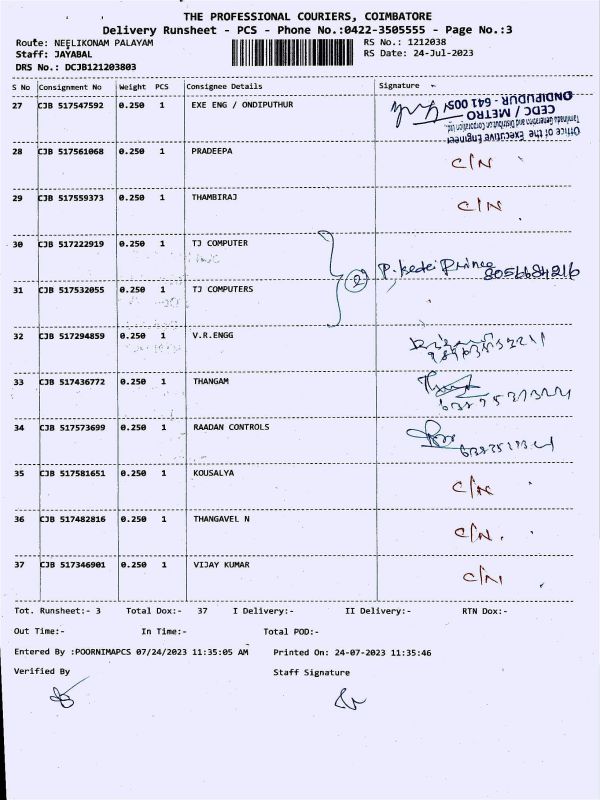 THE PROFESSIONAL COURIERS, COIMBATORE
Delivery Runsheet - PCS - Phone No.:0422-3505555 - Page No.:3
Route: NEELIKONAM PALAYAM RS No.: 1212038
Staff: JAYABAL RS Date: 24-Jul-2023
DRS No.: DCJB121203803
S No Consignment No Weight PCS Consignee Details Signature
27 CJB 517547592 0.250 1 EXE ENG / ONDIPUTHUR
Office of the Executive Engineer
Tamilnadu Generation and Distribution Corporation Ltd.,
CEDC / METRO
ONDIPUDUR - 641 005
28 CJB 517561068 0.250 1 PRADEEPA C/N
29 CJB 517559373 0.250 1 THAMBIRAJ C/N
30 CJB 517222919 0.250 1 TJ COMPUTER
2
31 CJB 517532055 0.250 1 TJ COMPUTERS
32 CJB 517294859 0.250 1 V.R.ENGG
33 CJB 517436772 0.250 1 THANGAM
34 CJB 517573699 0.250 1 RAADAN CONTROLS
35 CJB 517581651 0.250 1 KOUSALYA C/N
36 CJB 517482816 0.250 1 THANGAVEL N C/N.
37 CJB 517346901 0.250 1 VIJAY KUMAR C/N
Tot. Runsheet:- 3 Total Dox:- 37 I Delivery:- II Delivery:- RTN Dox:-
Out Time:- In Time:- Total POD:-
Entered By :POORNIMAPCS 07/24/2023 11:35:05 AM Printed On: 24-07-2023 11:35:46
Verified By Staff Signature